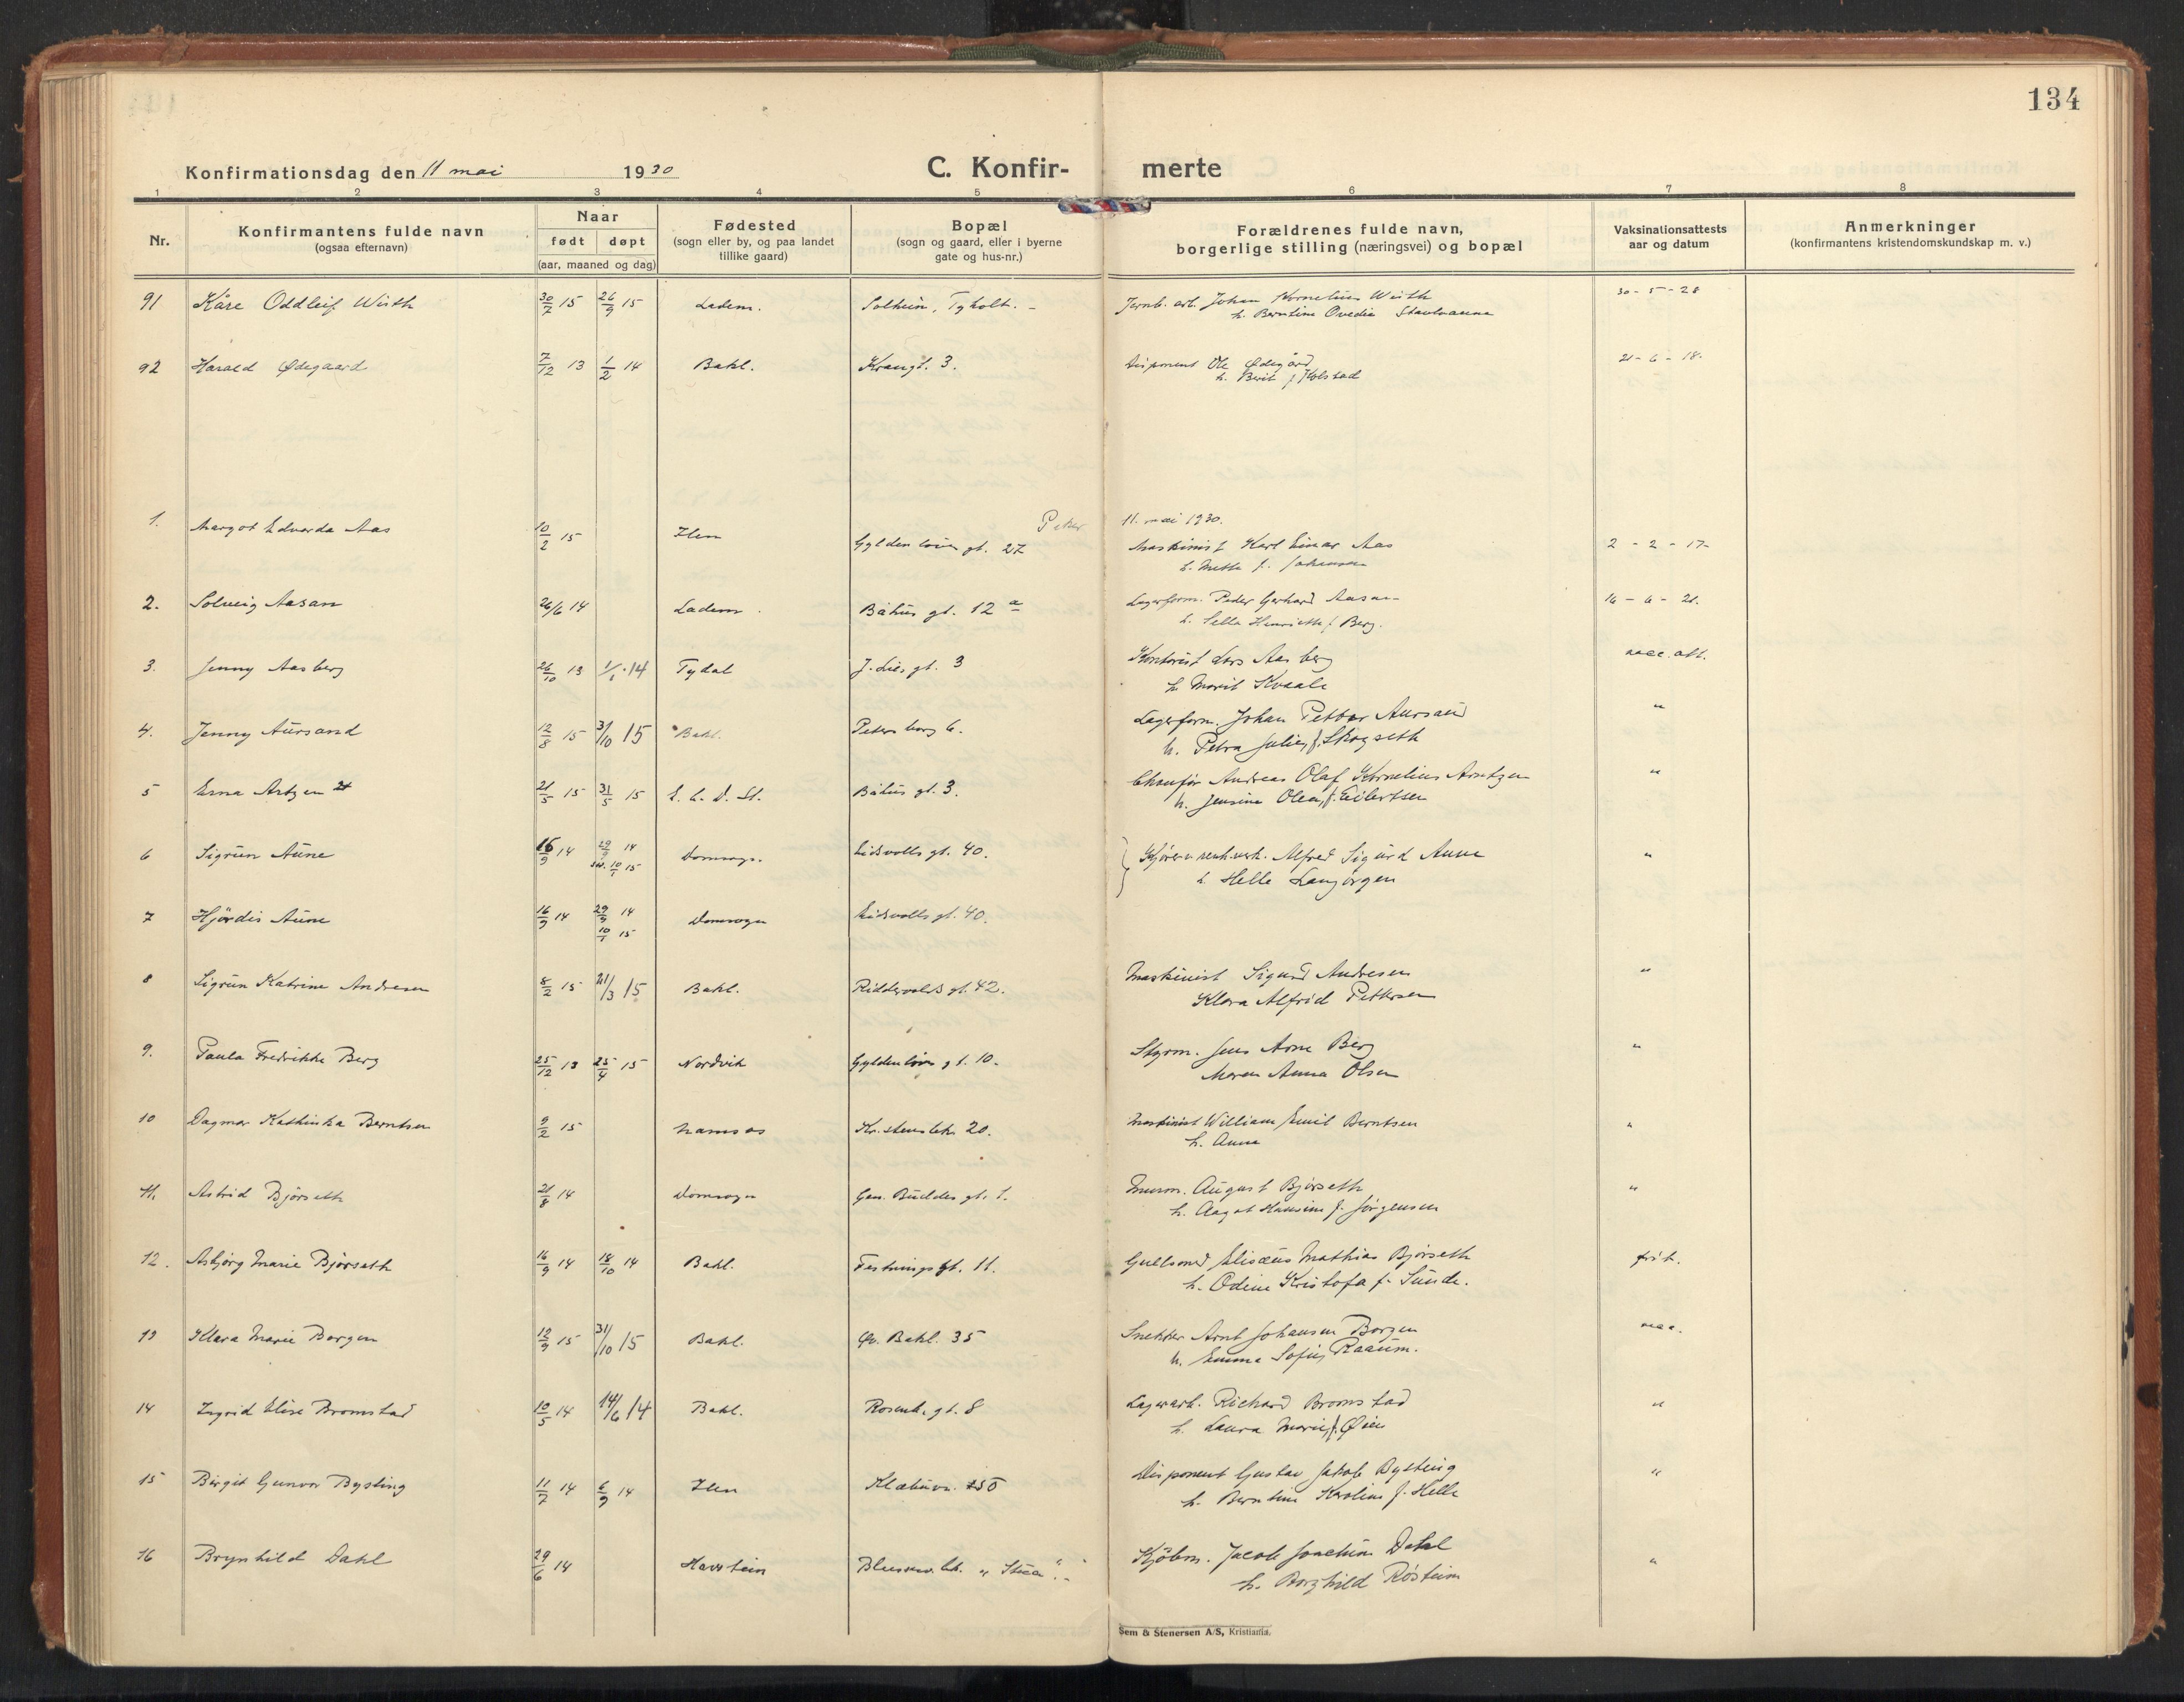 134
Konfirmationsdag den 11 mai 1930
C. Konfir- merte
1 2 3 4 5 6 7 8
Nr.
Konfirmantens fulde navn
(ogsaa efternavn)
Naar
født døpt
(aar, maaned og dag)
Fødested
(sogn eller by, og paa landet
tillike gaard)
Bopæl
(sogn og gaard, eller i byerne
gate og hus-nr.)
Forældrenes fulde navn,
borgerlige stilling (næringsvei) og bopæl
Vaksinationsattests
aar og datum
Anmerkninger
(konfirmantens kristendomskundskap m. v.)
91 Kåre Oddleif Wirth 30/7 15 26/9 15 Ladem. Solheim, Tyholt. - Jernb. arb. Johan Kornelius Wirth 30-5-28
h. Berntine Ovedie
92 Harald Ødegaard 7/12 13 1/2 14 Bakl. Krangt. 3. Disponent Ole Ødegård 21-6-18.
h. Berit f. Kolstad
Peker 11. mai 1930.
1. Margot Edvarda Aas 10/2 15 Ilen Gyldenløves gt. 27 Maskinist Karl Einar Aas 2-2-17-
h. Mette f. Johansen
2. Solveig Aasan 26/6 14 Ladem. Båhus gt. 12 a Lagerform. Peder Gerhard Aasan- 16-6-21.
h. Sella Henriette f. Berg.
3. Jenny Aasberg 26/10 13 1/1 14 Tydal J. Lies gt. 3 Kontorist Lars Aasberg
h. Marit Kvaale
4. Jenny Aursand 12/8 15 31/10 15 Bakl. Petersborg 6. Lagerform. Johan Petter Aursand "
h. Petra Julie, f. Skogseth
5 Erna Artzen 21/5 15 31/5 15 E. C. D. St. Båhus gt. 3. Chauffør Andreas Olaf Kornelius Arntzen "
h. Jensine Olea, f. Eilertsen
6 Sigrun Aune 16/9 14 29/9 14 Domsogn. Eidsvolls gt. 40. Kjører v. renh.verk. Alfred Sigurd Aune "
10/1 15 h. Helle Langørgen
7 Hjördis Aune 16/9 14 29/9 14 Domsogn Eidsvolls gt. 40.
10/1 15
8 Sigrun Katrine Andresen 8/2 15 21/3 15 Bakl. Riddervolds gt. 42. Maskinist Sigurd Andresen "
Klara Alfrid Pettersen
9. Paula Fredrikke Berg 25/12 13 25/4 15 Nordvik Gyldenløves gt. 10. Styrm. Jens Arne Berg "
Maren Anna Olsen
10 Dagmar Kathinka Berntsen 9/2 15 Namsos Kristenslek. 20. Maskinist William Emil Berntsen "
h. Anna
11. Astrid Bjørseth 21/8 14 Domsogn Gen. Buddes gt. 1. Murm. August Bjørseth "
h. Aagot Hansine f. Jørgensen
12. Asbjørg Marie Bjørseth 16/9 14 18/10 14 Bakl. Festningsgt. 11. Gullsmed Elisæus Mathias Bjørseth frit.
h. Odine Kristofa f. Sunde.
13 Klara Marie Borgen 12/9 15 31/10 15 Bakl. Øv. Bakl. 35 Snekker Arnt Johansen Borgen
h. Emma Sofie, Raaum.
14 Ingrid Elise Bromstad 10/5 14 14/6 14 Bakl. Rosenb. gt. 8 Lagerarb. Richard Bromstad "
h. Laura Marie, f. Øien
15 Birgit Gunvor Bysting 11/7 14 6/9 14 Ilen Klæbuv. Disponent Gustav Jakob Bysting "
h. Berntine Karoline f. Helle
16 Brynhild Dahl 29/6 14 Havstein Blussuv. Kjöbm. Jacob Joachim Dahl "
h. Borghild Røstum
Sem & Stenersen A/S, Kristiania.